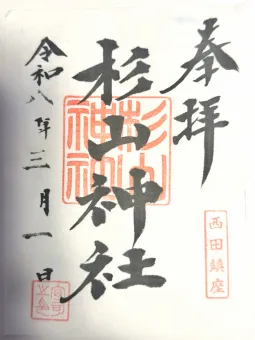 奉拝
杉山神社
令和八年三月一日
西田鎮座
杉山神社